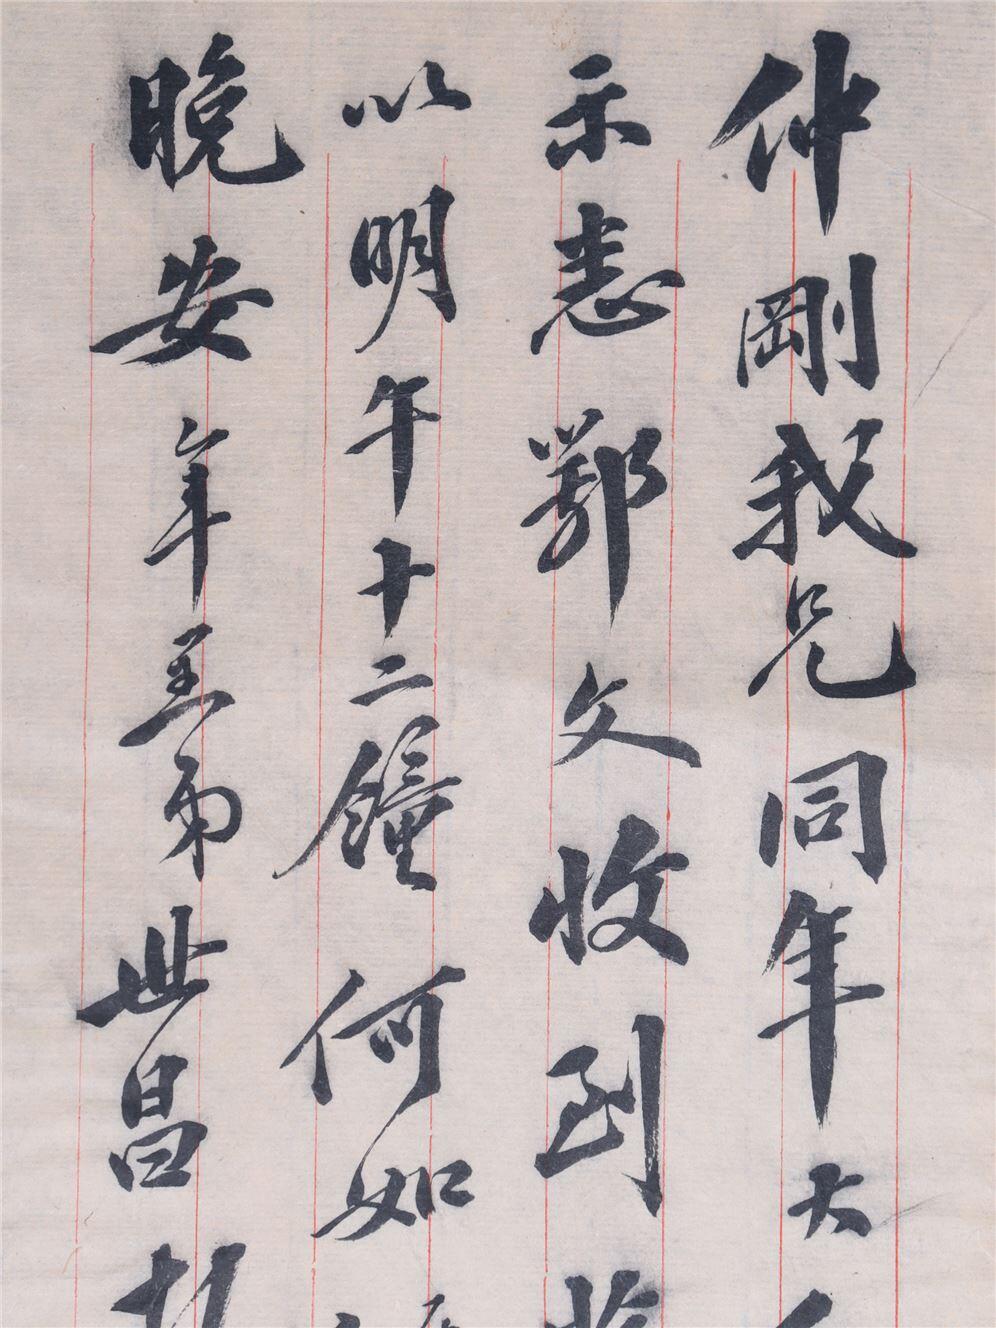 仲剛我兄同年大
示悉鄂文收到
以明午十二鐘何如
晚安年至弟世昌